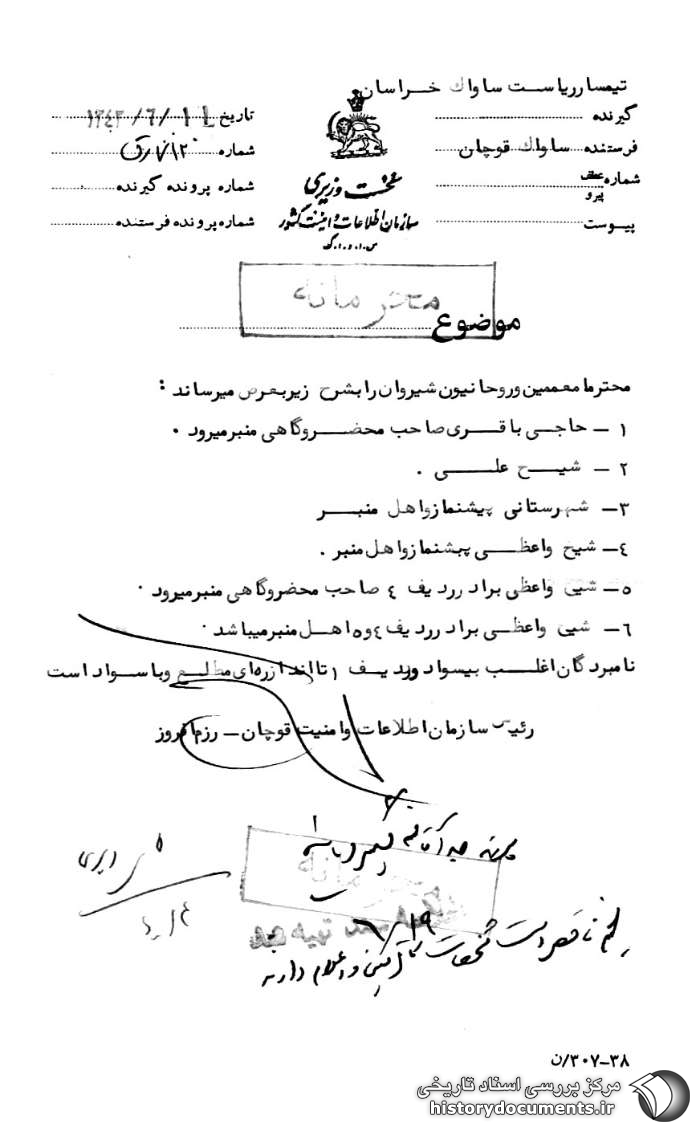 تیمسار ریاست ساواك خراسان
گیرنده
فرستنده ساواك قوچان
شماره عطف
پیرو
پیوست
نخست وزیری
سازمان اطلاعات و امنیت کشور
س.ا.و.ا.ک
تاریخ ۱۳۴۳/۶/۱۱
شماره
شماره پرونده گیرنده
شماره پرونده فرستنده
محترمانه
موضوع
محترما معممین وروحانیون شیروان رابشرح زیربعرض میرساند :
۱ – حاجی باقری صاحب محضروگاهی منبرمیرود .
۲ – شیخ علی .
۳– شهرستانی پیشنمازواهل منبر
٤– شیخ واعظی پیشنمازواهل منبر .
۵– شیخ واعظی برادرردیف ٤ صاحب محضروگاهی منبرمیرود .
۶– شیخ واعظی برادرردیف ٤و۵ اهل منبرمیباشد .
نامبردگان اغلب بیسواد وردیف ۱ تااندازه‌ای مطلع وباسواد است
رئیس سازمان اطلاعات وامنیت قوچان – رزم‌افروز
محرمانه
۶/۱۹
۳۰۷-۳۸/ن
مرکز بررسی اسناد تاریخی
historydocuments.ir